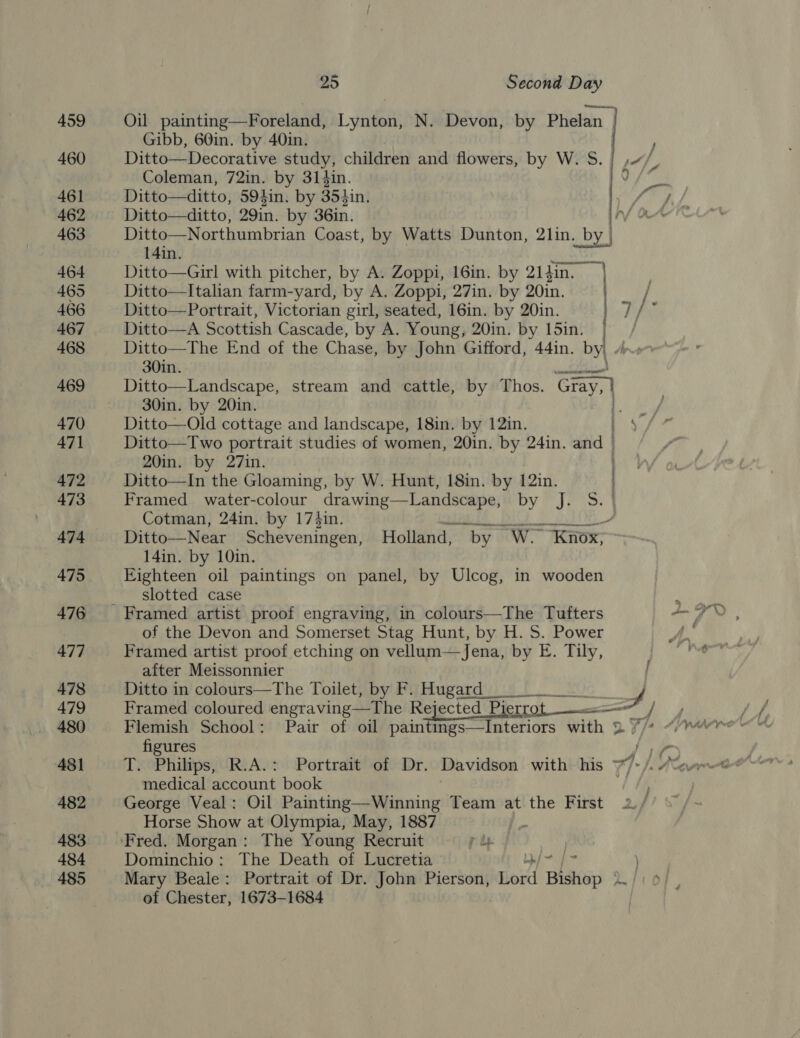 25 Second Day
459 Oil painting—Foreland, Lynton, N. Devon, by Phelan
Gibb, 60in. by 40in.
460 Ditto—Decorative study, children and flowers, by W. S.
Coleman, 72in. by 31½in.
461 Ditto—ditto, 59½in. by 35½in.
462 Ditto—ditto, 29in. by 36in.
463 Ditto—Northumbrian Coast, by Watts Dunton, 21in. by
14in.
464 Ditto—Girl with pitcher, by A. Zoppi, 16in. by 21½in.
465 Ditto—Italian farm-yard, by A. Zoppi, 27in. by 20in.
466 Ditto—Portrait, Victorian girl, seated, 16in. by 20in.
467 Ditto—A Scottish Cascade, by A. Young, 20in. by 15in.
468 Ditto—The End of the Chase, by John Gifford, 44in. by
30in.
469 Ditto—Landscape, stream and cattle, by Thos. Gray,
30in. by 20in.
470 Ditto—Old cottage and landscape, 18in. by 12in.
471 Ditto—Two portrait studies of women, 20in. by 24in. and
20in. by 27in.
472 Ditto—In the Gloaming, by W. Hunt, 18in. by 12in.
473 Framed water-colour drawing—Landscape, by J. S.
Cotman, 24in. by 17½in.
474 Ditto—Near Scheveningen, Holland, by W. Knox,
14in. by 10in.
475 Eighteen oil paintings on panel, by Ulcog, in wooden
slotted case
476 Framed artist proof engraving, in colours—The Tufters
of the Devon and Somerset Stag Hunt, by H. S. Power
477 Framed artist proof etching on vellum—Jena, by E. Tily,
after Meissonnier
478 Ditto in colours—The Toilet, by F. Hugard
479 Framed coloured engraving—The Rejected Pierrot
480 Flemish School: Pair of oil paintings—Interiors with
figures
481 T. Philips, R.A.: Portrait of Dr. Davidson with his
medical account book
482 George Veal: Oil Painting—Winning Team at the First
Horse Show at Olympia, May, 1887
483 Fred. Morgan: The Young Recruit
484 Dominchio: The Death of Lucretia
485 Mary Beale: Portrait of Dr. John Pierson, Lord Bishop
of Chester, 1673–1684